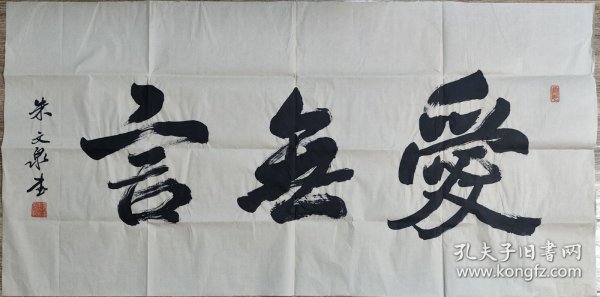 愛無言
朱文泉书
孔夫子旧书网
www.kongfz.com